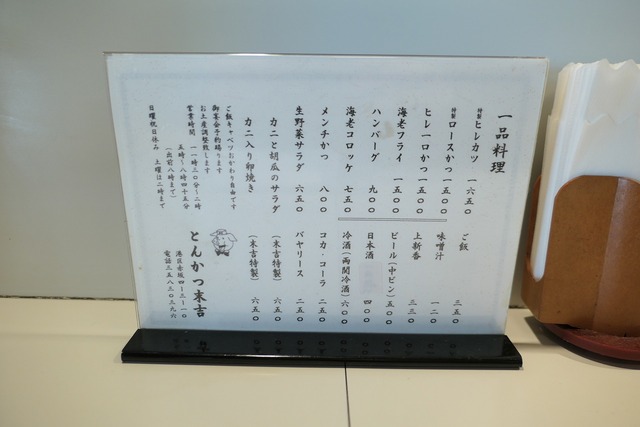 一品料理
特製ヒレカツ 一六五〇
特製ロースかつ 一五〇〇
ヒレ一口かつ 一五〇〇
海老フライ 一五〇〇
ハンバーグ 九〇〇
海老コロッケ 七五〇
メンチかつ 八〇〇
生野菜サラダ 六五〇
ご飯 三五〇
味噌汁 一二〇
上新香 三三〇
ビール(中ビン) 五〇〇
日本酒 四〇〇
冷酒(両関冷酒) 六〇〇
コカ・コーラ 二五〇
バヤリース 二五〇
カニと胡瓜のサラダ (末吉特製) 六五〇
カニ入り卵焼き (末吉特製) 六五〇
ご飯キャベツおかわり自由です
御宴会予約賜ります
お土産調整致します
営業時間 一一時三〇分〜二時
五時〜八時四十五分
(出前八時まで)
日曜祝日休み 土曜は二時まで
とんかつ末吉
港区赤坂四ー三ー一〇
電話三五八三〇三九六